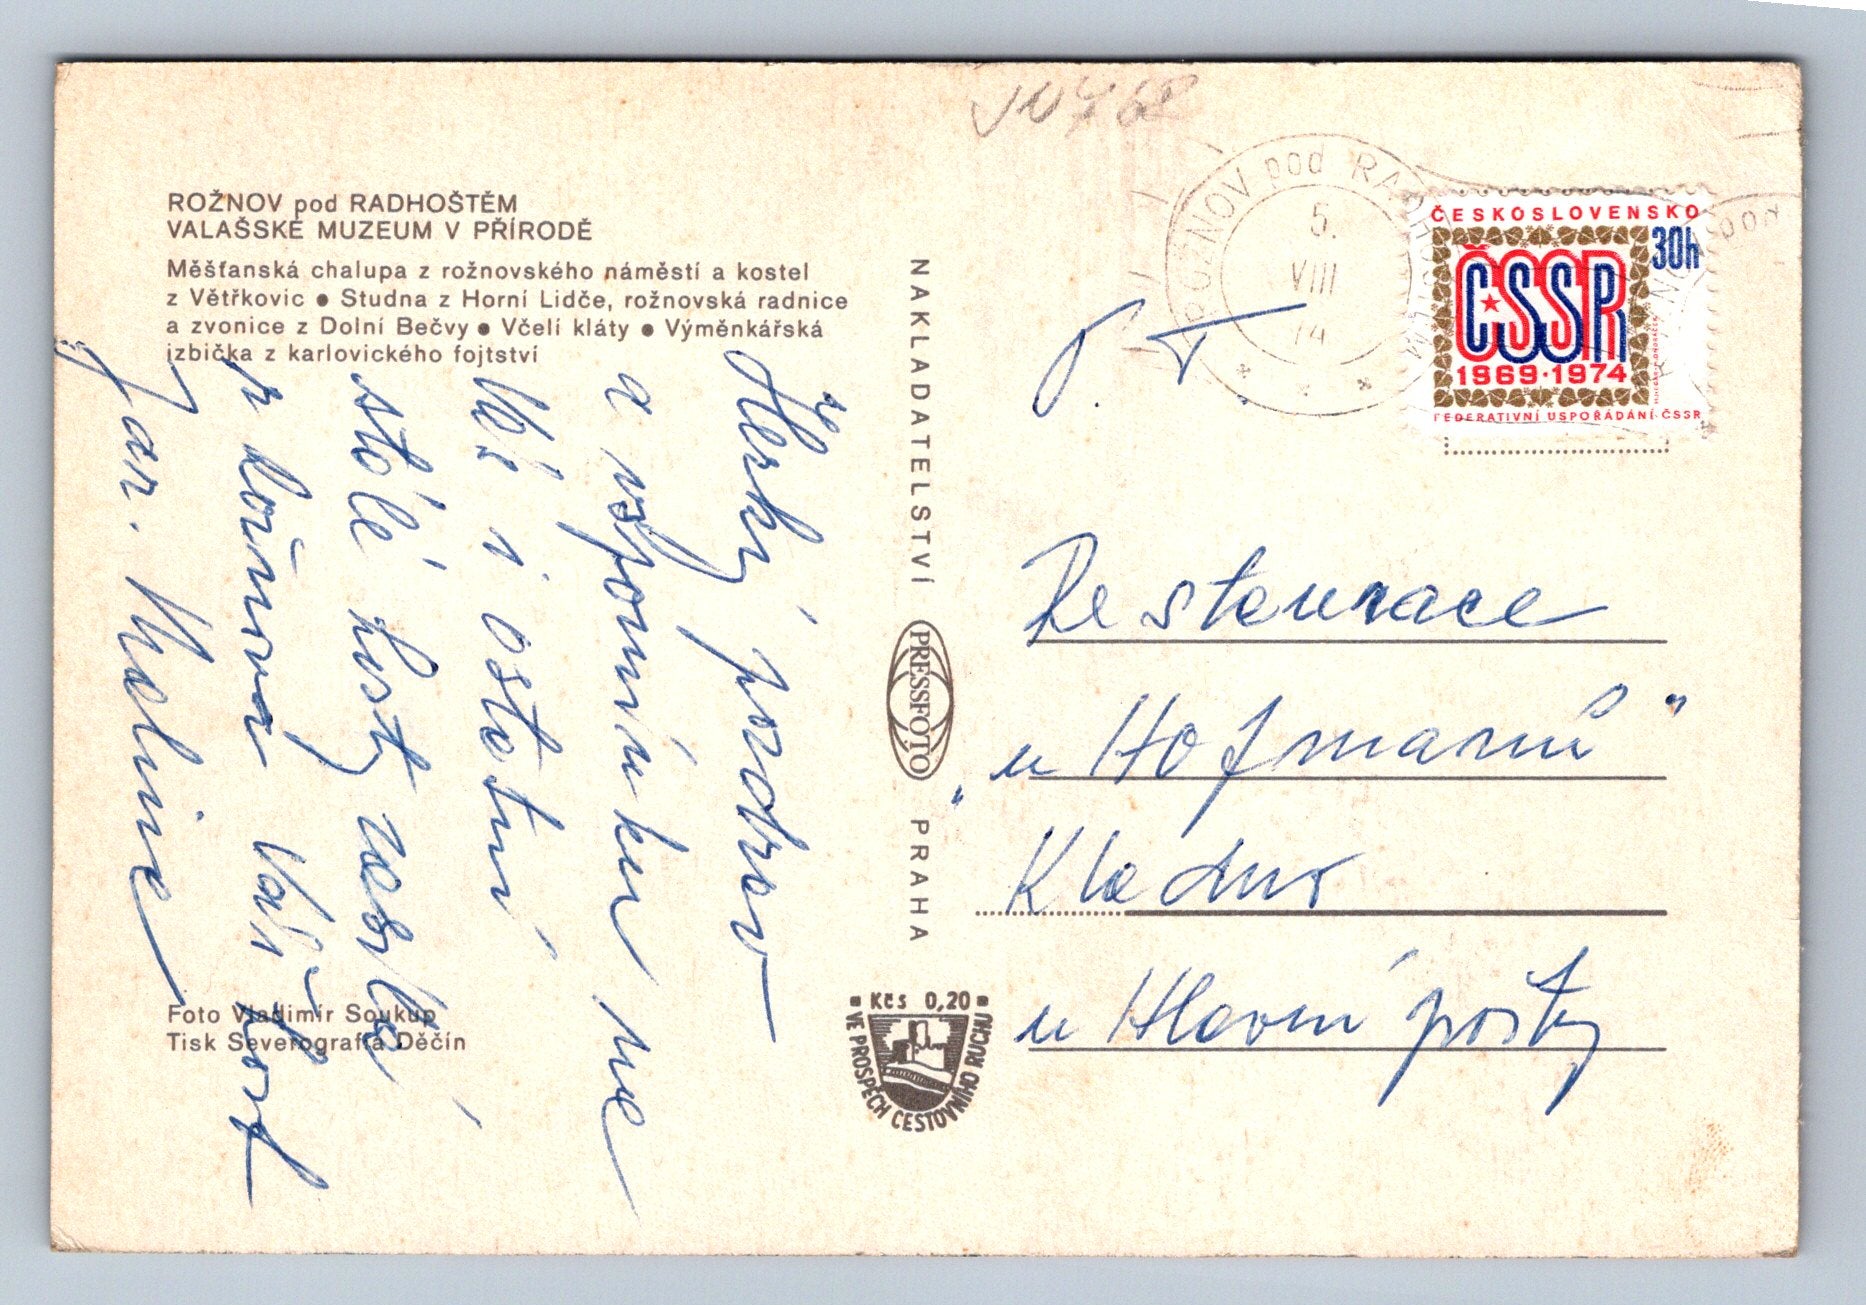 ROŽNOV pod RADHOŠTĚM
VALAŠSKÉ MUZEUM V PŘÍRODĚ
Měšťanská chalupa z rožnovského náměstí a kostel
z Větřkovic ● Studna z Horní Lidče, rožnovská radnice
a zvonice z Dolní Bečvy ● Včelí kláty ● Výměnkářská
izbička z karlovického fojtství
Hezký pozdrav
a vzpomínku na
Váš i ostatní
stálé hosty zasílá
z Rožnova Váš host
Jar. Malinc
Foto Vladimír Soukup
Tisk Severografia Děčín
NAKLADATELSTVÍ PRESSFOTO PRAHA
Kčs 0,20
VE PROSPĚCH CESTOVNÍHO RUCHU
ROŽNOV pod RADHOŠTĚM
5.
VIII
74
pod
ČESKOSLOVENSKO
30h
ČSSR
1969·1974
FEDERATIVNÍ USPOŘÁDÁNÍ ČSSR
P. T.
Restaurace
„u Hofmanů"
Kladno
u Hlavní pošty